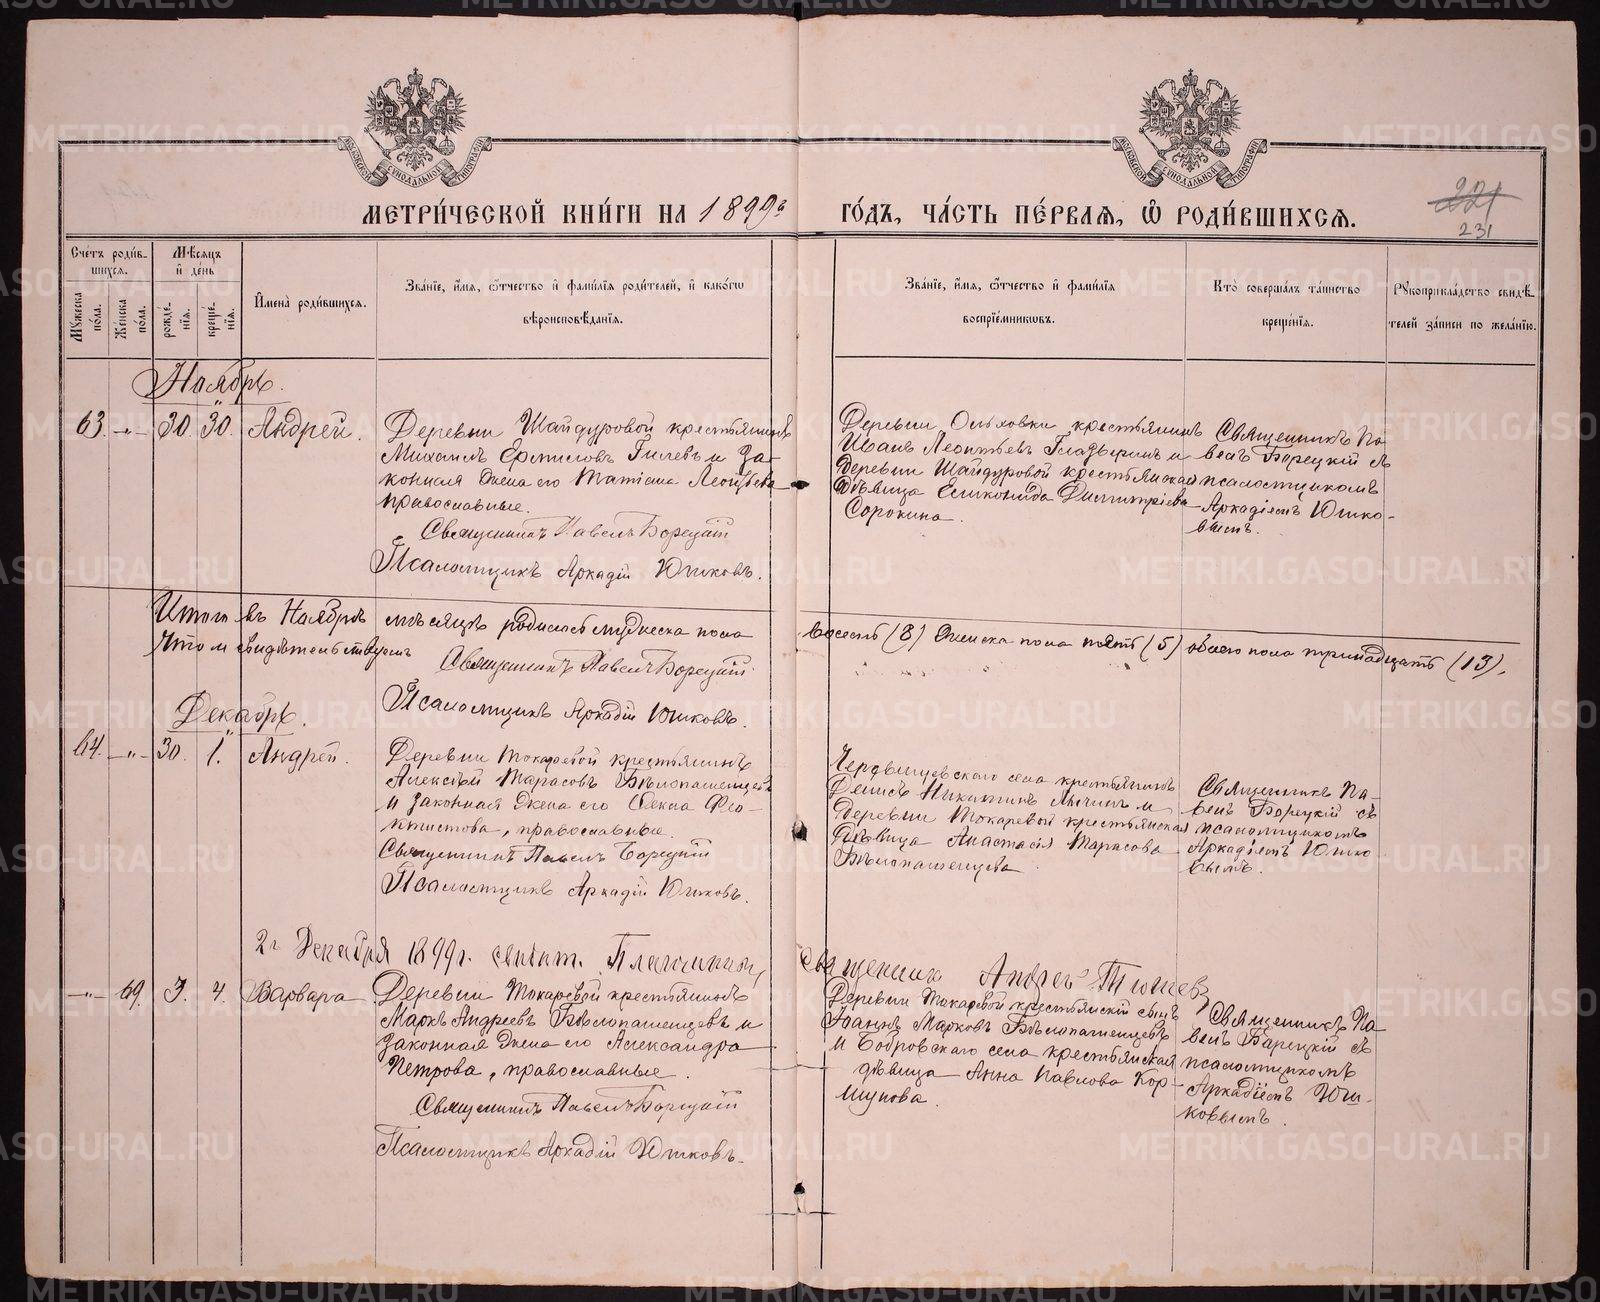 МЕТРИ́ЧЕСКОЙ КНИ́ГИ НА 1899й
ГО́ДЪ, ЧА́СТЬ ПЕ́РВАѦ, Ѽ РОДИ́ВШИХСѦ.
221
231
Сче́тъ роди́в-
шихсѧ.
Мѣ́сѧцъ
и҆ де́нь
Мꙋ́жеска по́ла.
Же́нска по́ла.
рожде́-
нїѧ.
креще́-
нїѧ.
И҆мена̀ роди́вшихсѧ.
Зва́нїе, и҆́мѧ, ѻ҆́тчество и҆ фами́лїѧ роди́телей, и҆ како́гѡ
вѣроисповѣ́данїѧ.
Зва́нїе, и҆́мѧ, ѻ҆́тчество и҆ фами́лїѧ
воспрїе́мникѡвъ.
Кто̀ соверша́лъ та́инство
креще́нїѧ.
Рꙋкоприкла́дство свидѣ́-
телей за́писи по жела́нїю.
Ноябрь.
63. -"- 30. 30. Андрей.
Деревни Шайдуровой крестьянинъ
Михаилъ Гилевъ и за-
конная жена его Татіана Леонтьева
православные.
Священникъ Павелъ Борецкій
Псаломщикъ Аркадій Юшковъ.
Деревни Ольховки крестьянинъ
Иванъ Леонтьевъ и
деревни Шайдуровой крестьянская
дѣвица Димитріева
Сорокина.
Священникъ Па-
велъ Борецкій съ
псаломщикомъ
Аркадіемъ Юшко-
вымъ.
Итого въ Ноябрѣ мѣсяцѣ родилось мужеска пола восемь (8) женска пола пять (5) обоего пола тринадцать (13).
Что и свидѣтельствуемъ
Священникъ Павелъ Борецкій
Псаломщикъ Аркадій Юшковъ.
Декабрь.
64. -"- 30. 1. Андрей.
Деревни Токаревой крестьянинъ
Алексѣй Тарасовъ Бѣлопашенцевъ
и законная жена его Ѳекла Ѳео-
ктистова, православные.
Священникъ Павелъ Борецкій
Псаломщикъ Аркадій Юшковъ.
села крестьянинъ
Денисъ Никитинъ и
деревни Токаревой крестьянская
дѣвица Анастасія Тарасова
Бѣлопашенцева
Священникъ Па-
велъ Борецкій съ
псаломщикомъ
Аркадіемъ Юшко-
вымъ.
2г Декабря 1899г. Священникъ Андрей
-"- 69. 3. 4. Варвара
Деревни Токаревой крестьянинъ
Маркъ Андреевъ Бѣлопашенцевъ и
законная жена его Александра
Петрова, православные.
Священникъ Павелъ Борецкій
Псаломщикъ Аркадій Юшковъ.
Деревни Токаревой крестьянскій сынъ
Іоаннъ Марковъ Бѣлопашенцевъ
и Бобровскаго села крестьянская
дѣвица Анна Павлова Кор-
шунова.
Священникъ Па-
велъ Борецкій съ
псаломщикомъ
Аркадіемъ Юш-
ковымъ.
METRIKI.GASO-URAL.RU